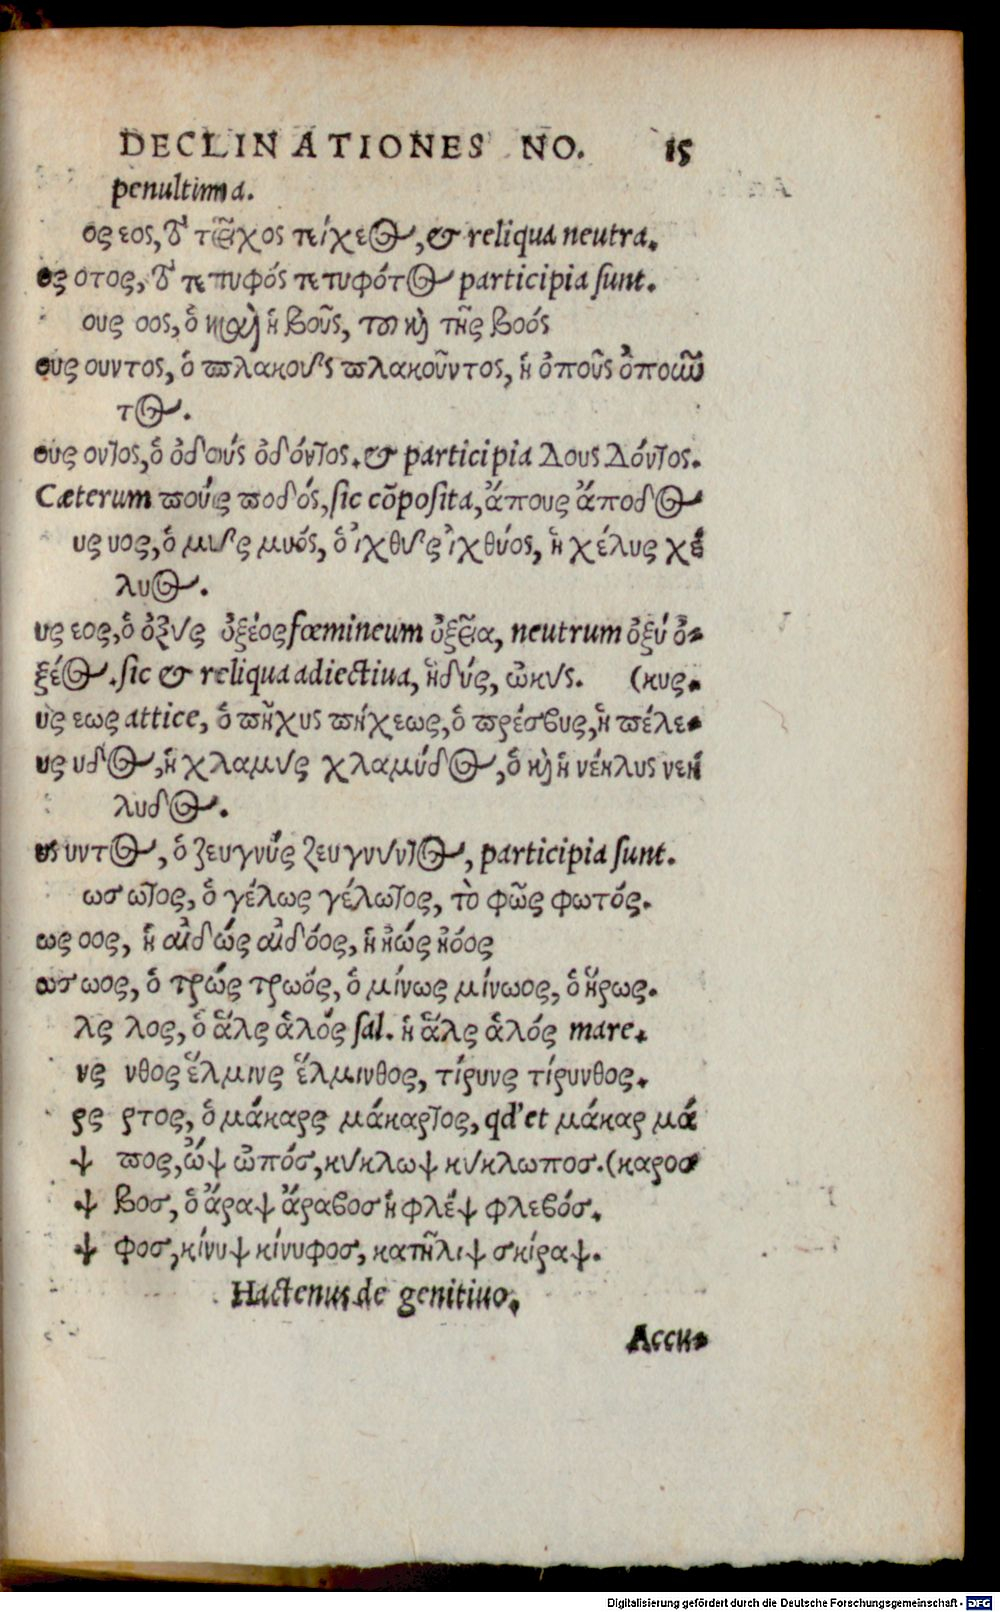 DECLINATIONES NO. 15
penultima.
ος εος, τὸ τεῖχος τείχεος, & reliqua neutra.
ος οτος, τὸ τετυφός τετυφότος participia sunt.
ους οος, ὁ καὶ ἡ βοῦς, τοῦ καὶ τῆς βοός
ους ουντος, ὁ πλακοὺς πλακοῦντος, ἡ ὀποῦς ὀποῦν
τος.
ους οντος, ὁ ὀδούς ὀδόντος. & participia δους δόντος.
Cæterum πούς ποδός, sic cōposita, ἄπους ἄποδος
υς υος, ὁ μυὺς μυός, ὁ ἰχθὺς ἰχθύος, ἡ χέλυς χέ
λυος.
υς εος, ὁ ὀξὺς ὀξέος fœmineum ὀξεῖα, neutrum ὀξύ ὀ-
ξέος. sic & reliqua adiectiua, ἡδύς, ὠκύς. (κυς.
υς εως attice, ὁ πῆχυς πήχεως, ὁ πρέσβυς, ἡ πέλε-
υς υδος, ἡ χλαμὺς χλαμύδος, ὁ καὶ ἡ νέηλυς νεή
λυδος.
υς υντος, ὁ ζευγνῦς ζευγνύντος, participia sunt.
ωσ ωτος, ὁ γέλως γέλωτος, τὸ φῶς φωτός.
ως οος, ἡ αἰδώς αἰδόος, ἡ ἠώς ἠόος
ωσ ωος, ὁ τρώς τρωός, ὁ μίνως μίνωος, ὁ ἥρως.
λς λος, ὁ ἅλς ἁλός sal. ἡ ἅλς ἁλός mare.
νς νθος ἕλμινς ἕλμινθος, τίρυνς τίρυνθος.
ρς ρτος, ὁ μάκαρς μάκαρτος, qd' et μάκαρ μά
ψ πος, ὤψ ὠπός, κύκλωψ κύκλωπος. (καρος
ψ βοσ, ὁ ἄραψ ἄραβοσ ἡ φλέψ φλεβός.
ψ φοσ, κίνυψ κίνυφοσ, κατῆλιψ σκίραψ.
Hactenus de genitiuo.
Accu-
Digitalisierung gefördert durch die Deutsche Forschungsgemeinschaft - DFG